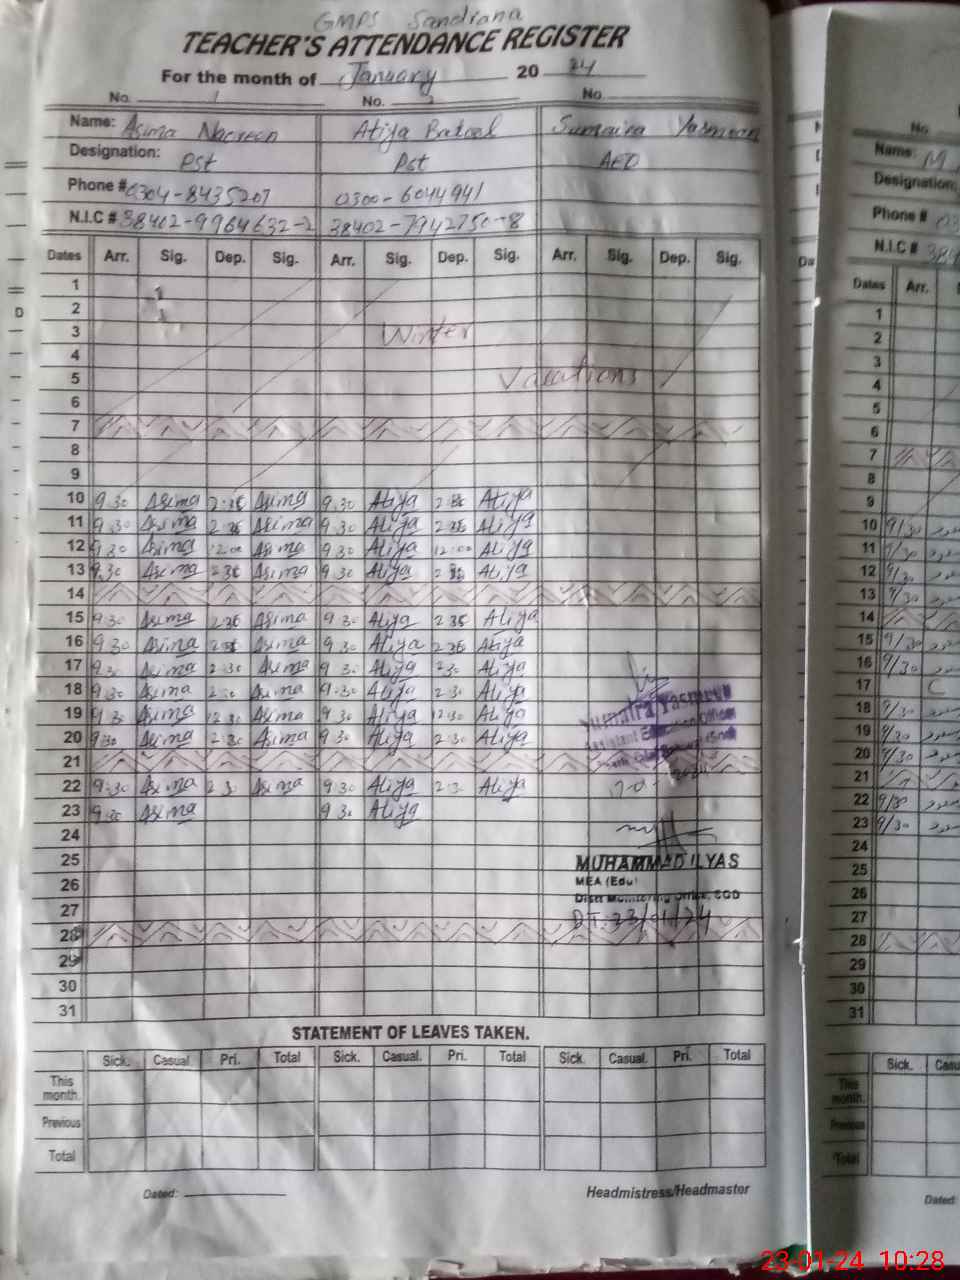 GMPS Sandrana
TEACHER'S ATTENDANCE REGISTER
For the month of January 20 24
No. 1 No. 2 No.
Name: Asima Nasreen Atiya Batool Sumaira Yasmeen
Designation: Pst Pst AEO
Phone # 0304-8435207 0300-6044941
N.I.C # 38402-9964632-2 38402-7942750-8
Dates Arr. Sig. Dep. Sig. Arr. Sig. Dep. Sig. Arr. Sig. Dep. Sig.
1
2
3 Winter
4
5 Vacations
6
7
8
9
10 9.30 Asima 2.35 Asima 9.30 Atiya 2 35 Atiya
11 9.30 Asima 2.35 Asima 9.30 Atiya 2.35 Atiya
12 9.30 Asima 12.00 Asima 9.30 Atiya 12:00 Atiya
13 9.30 Asima 2.35 Asima 9.30 Atiya 2 35 Atiya
14
15 9.30 Asima 2.35 Asima 9.30 Atiya 2 35 Atiya
16 9.30 Asima 2.35 Asima 9.30 Atiya 2.35 Atiya
17 9.30 Asima 2.30 Asima 9.30 Atiya 2.30 Atiya
18 9.30 Asima 2.30 Asima 9.30 Atiya 2.30 Atiya
19 9.30 Asima 12.30 Asima 9.30 Atiya 12.30 Atiya
20 9.30 Asima 2.30 Asima 9.30 Atiya 2.30 Atiya
21
22 9.30 Asima 2.30 Asima 9.30 Atiya 2.30 Atiya
23 9.30 Asima 9.30 Atiya
24
25
26
27
28
29
30
31
Sumaira Yasmeen
Assistant Education Officer
MUHAMMAD ILYAS
MEA (Edu)
Distt Monitoring Office, SGD
DT: 23/01/24
STATEMENT OF LEAVES TAKEN.
Sick. Casual. Pri. Total Sick. Casual. Pri. Total Sick. Casual. Pri. Total
This month.
Previous
Total
Dated: Headmistress/Headmaster
No.
Name: M
Designation:
Phone # 03
N.I.C #
Dates Arr.
1
2
3
4
5
6
7
8
9
10 9/30
11 9/30
12 9/30
13 9/30
14
15 9/30
16 9/30
17 C
18 9/30
19 9/30
20 9/30
21
22 9/30
23 9/30
24
25
26
27
28
29
30
31
Sick.
This month.
Previous
Total
Dated
23-01-24 10:28